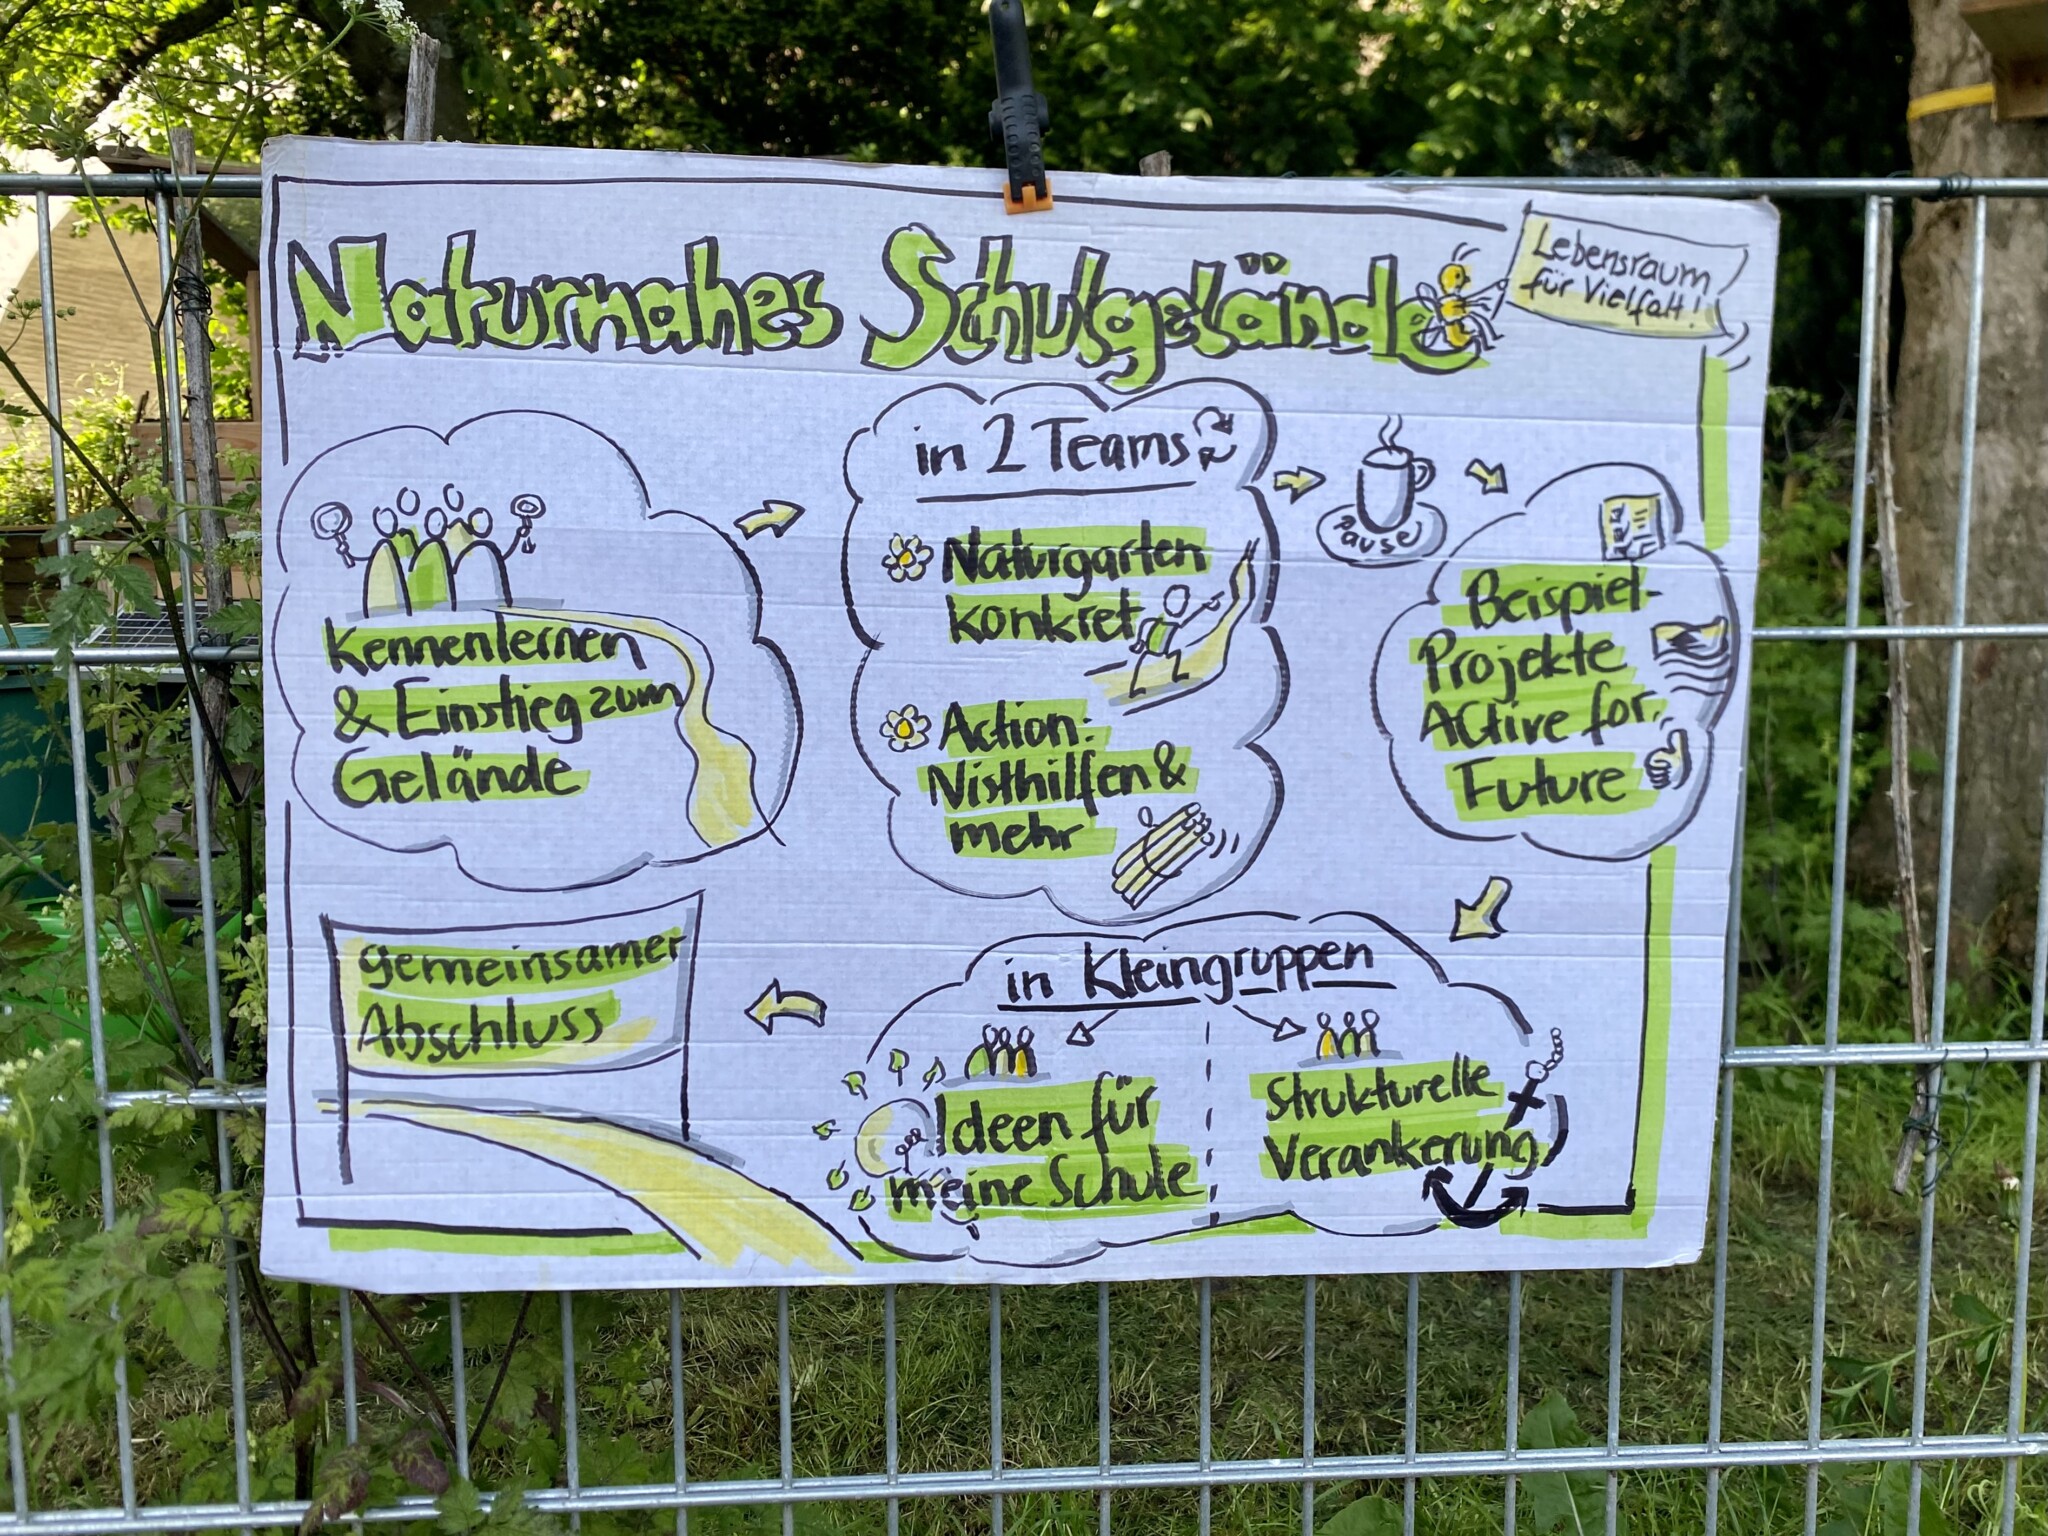 Naturnahes Schulgelände
Lebensraum
für Vielfalt!
Kennenlernen
& Einstieg zum
Gelände
in 2 Teams
Naturgarten
konkret
Action:
Nisthilfen &
mehr
Pause
Beispiel-
Projekte
Active for
Future
in Kleingruppen
Ideen für
meine Schule
Strukturelle
Verankerung
gemeinsamer
Abschluss